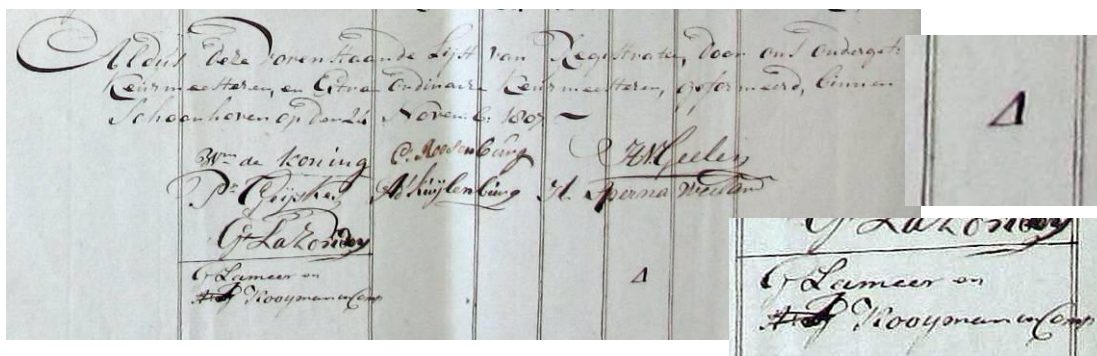 Aldus deze vorenstaande Lijst van Registraten, door ons onderget:
Keurmeesteren, en Extra ordinaire Keurmeesteren, geformeerd, binnen
Schoonhoven op den 24 Novemb: 1807
Wm de Koning C. Roosenburg
Ps Ad Kuijlenburg H. Sperna Weiland
Gt LaZonder
G Lameer en
Kooyman en Comp
Δ
Δ
Gt LaZonder
G Lameer en
Kooyman en Comp